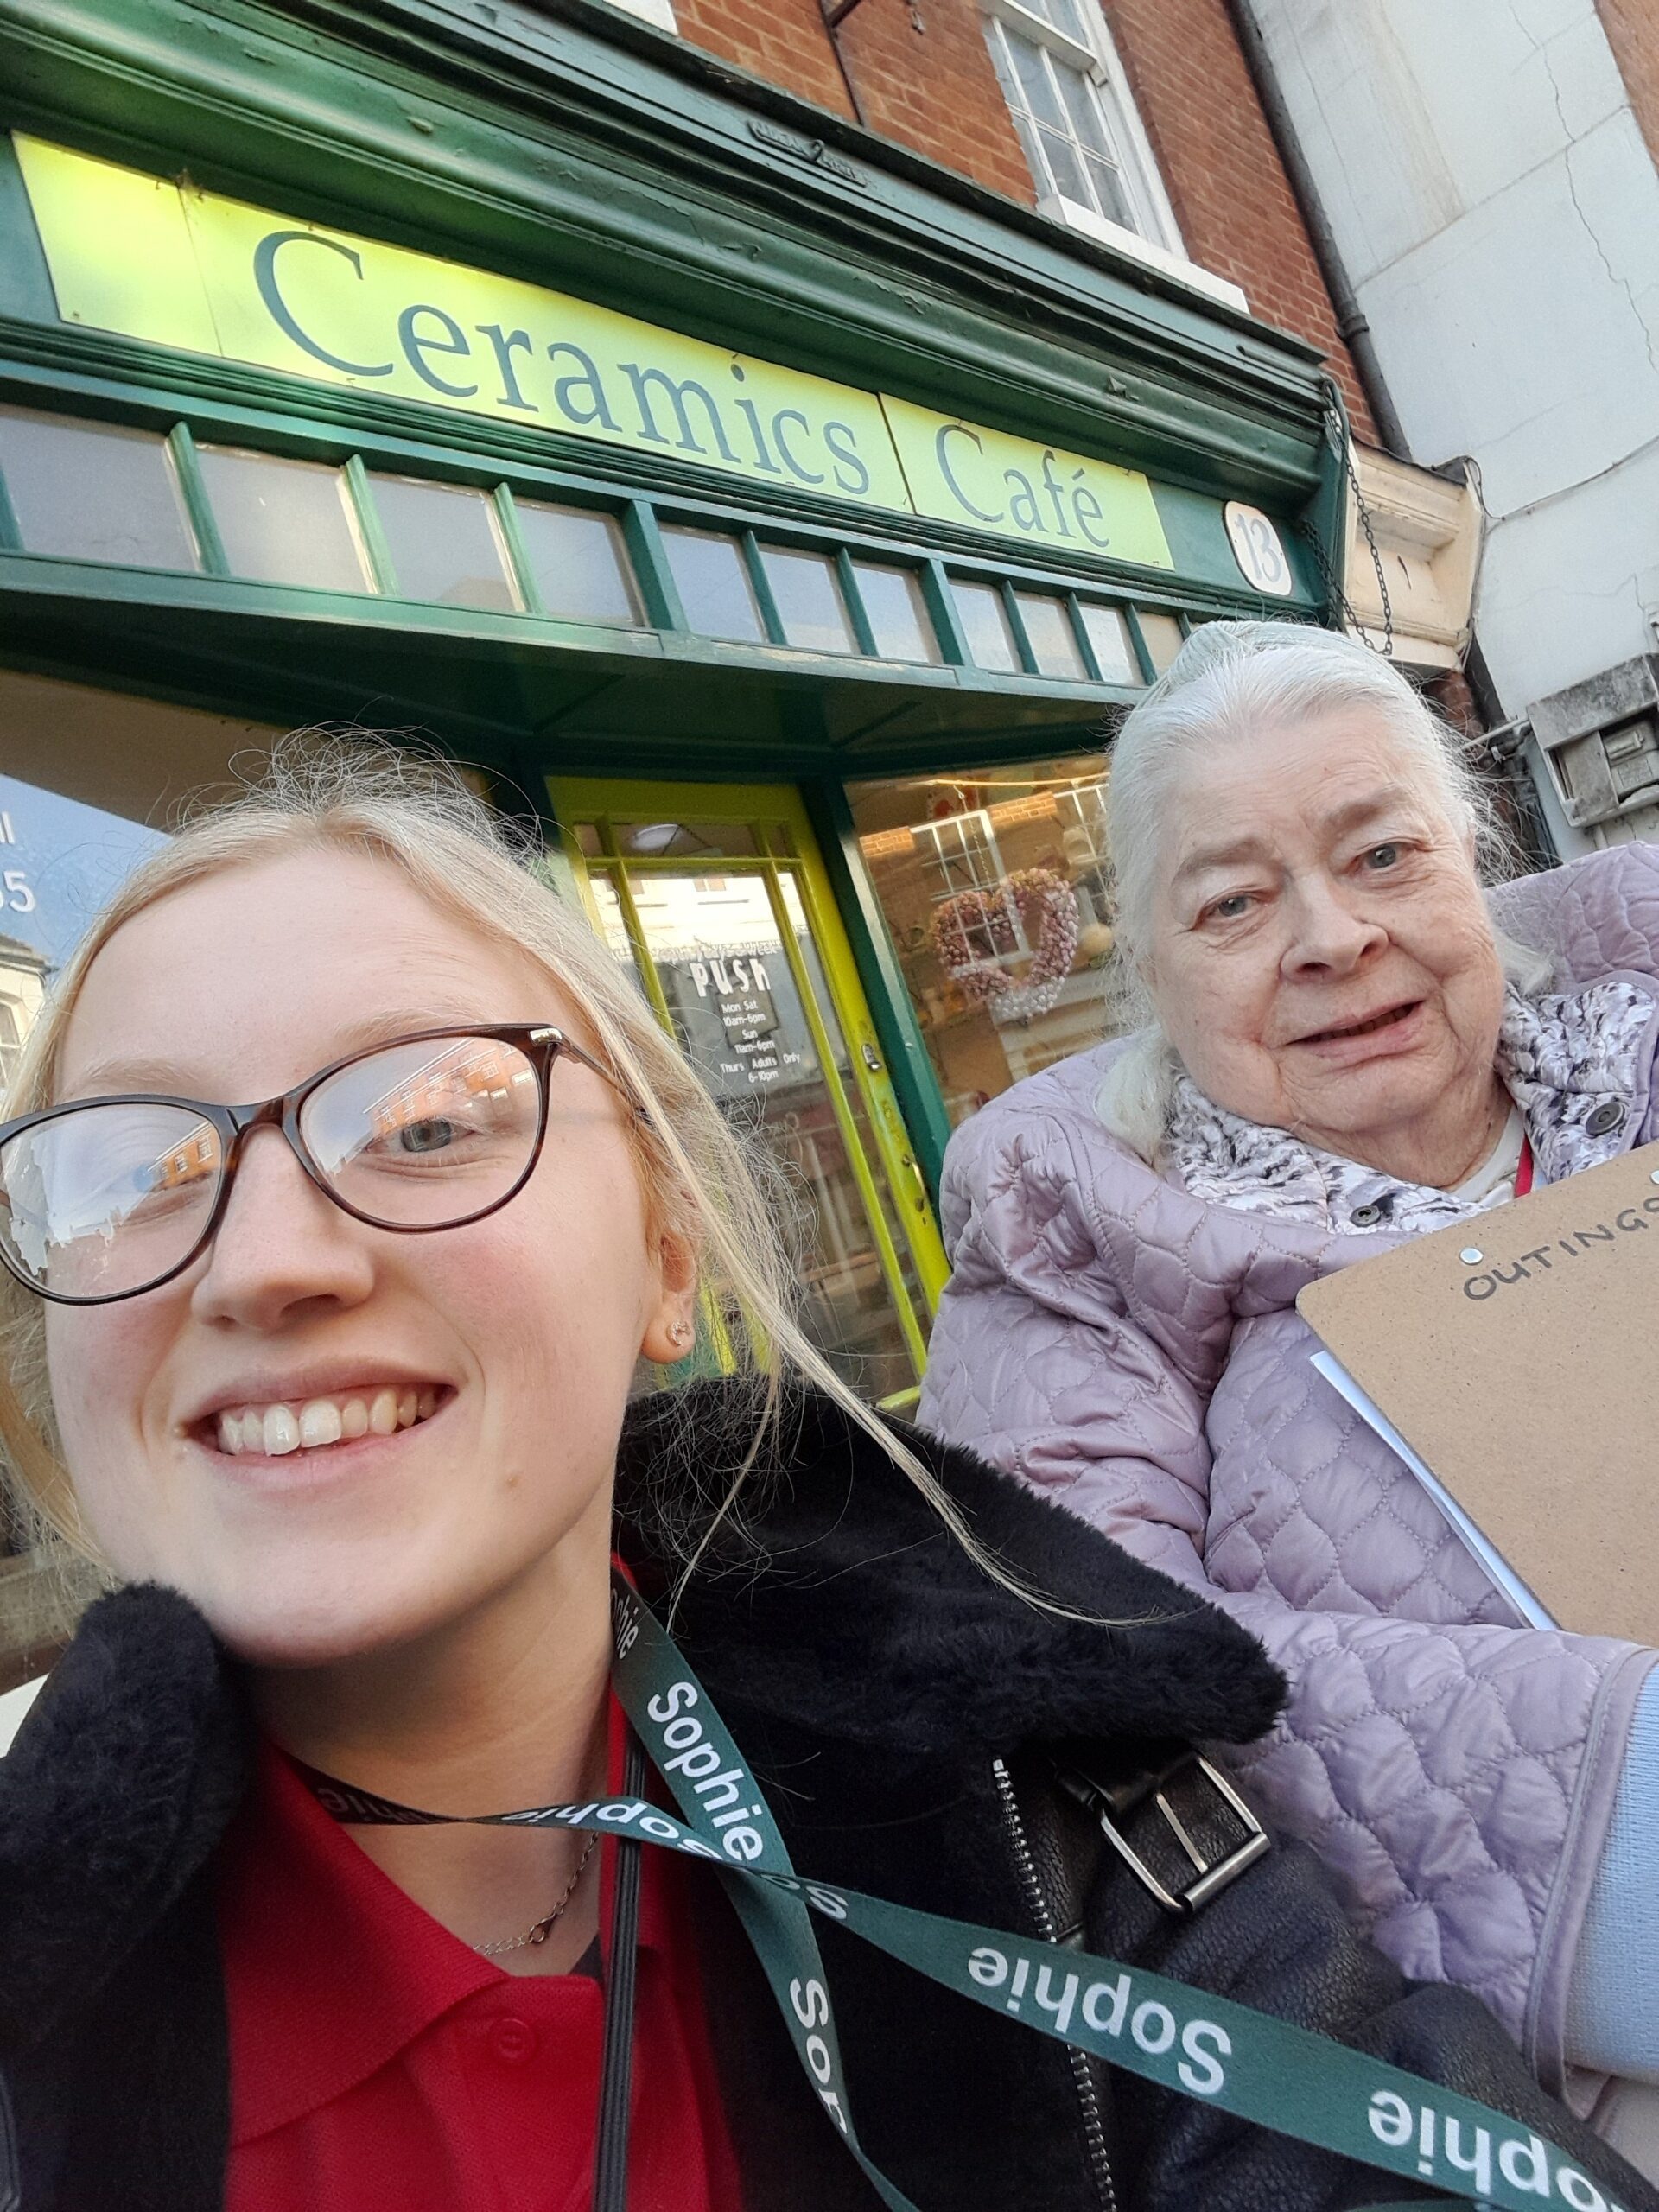 Ceramics Café
13
35
PUSH
Mon Sat
10am-6pm
Sun
11am-6pm
Thurs Adults Only
6-10pm
OUTINGS
Sophie
Sophie
Sophie
Sophie
Sophie